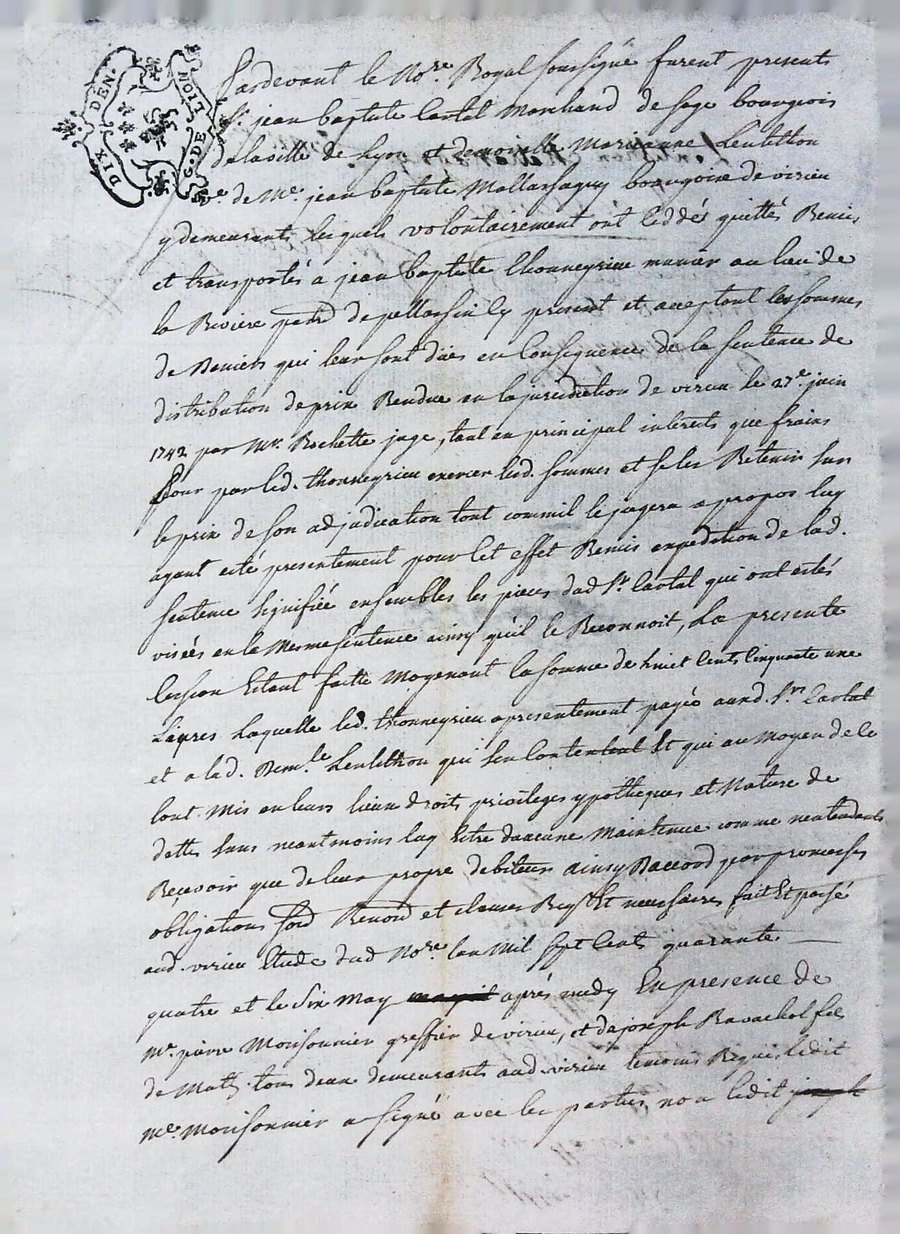 DIX DEN.
G. DE LION
Pardevant le No.re Royal soussigné furent presents
S.r jean baptiste Cartal Marchand de soye bourgeois
de la ville de Lyon et demoiselle Marianne Lentillon
v.e de M.e jean baptiste Mallassagny bourgois de virieu
y demeurants lesquels volontairement ont ceddés quittés Remis
et transportés a jean baptiste thonneyrieu manier au lieu de
la Riviere parr. de pellussin cy present et acceptant les sommes
de Deniers qui leur sont dües en Consequence de la sentence de
distribution de prix Rendue en la jurisdiction de virieu le 27.e juin
1742 par M.r Rochette juge, tant en principal interets que frains
pour par led. thonneyrieu exercer lesd. sommes et se les Retenir sur
le prix de son adjudication tout comm'il le jugera a propos luy
ayant esté presentement pour Cet effet Remis expedition de lad.
sentence signifiée ensembles les pieces dud. S.r Cartal qui ont estés
visées en la Mesme sentence ainsy qu'il le Reconnoit, La presente
Cession Estant faitte Moyenant la somme de huict Cents Cinquante une
Livres Laquelle led. thonneyrieu a presentement payé aud. S.r Cartal
et a lad. Dem.le Lentillon qui s'en Contentent Et qui au Moyen de ce
l'ont Mis en leurs lieux droits privileges ypotheques et Nature de
dette sans neantmoins luy Estre d'aucune Maintenue comme n'entendants
Recevoir que de leur propre debiteur ainsy Raccord par promesses
obligations soud. Renond et clauses Req.tes Et necessaires fait Et passé
aud. virieu Etude dud. No.re l'an Mil sept Cents quarante
quatre et le Six May après midy En presence de
M.e pierre Moissonnier greffier de virieu, et de joseph Ravachol fils
de Math. tous deux demeurants aud. virieu temoins Requis Ledit
M.e Moissonnier a signé avec les parties non ledit joseph